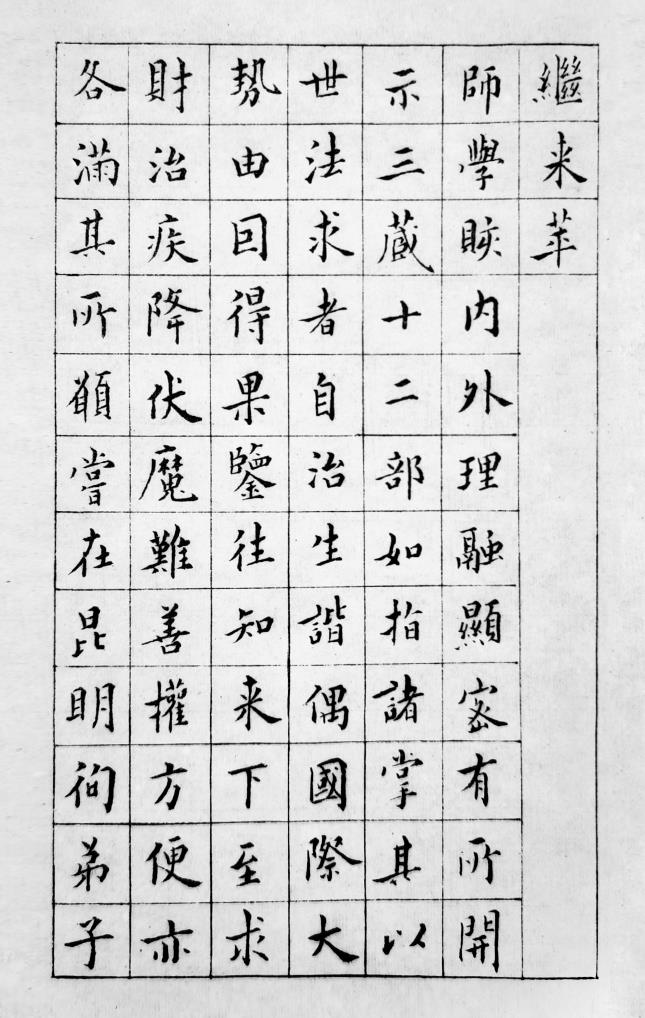 繼来華
師學賅内外理融顯密有所開
示三蔵十二部如指諸掌其以
世法求者自治生諧偶國際大
勢由回得果鑒往知来下至求
財治疾降伏魔難善權方便亦
各滿其所願嘗在昆明徇弟子